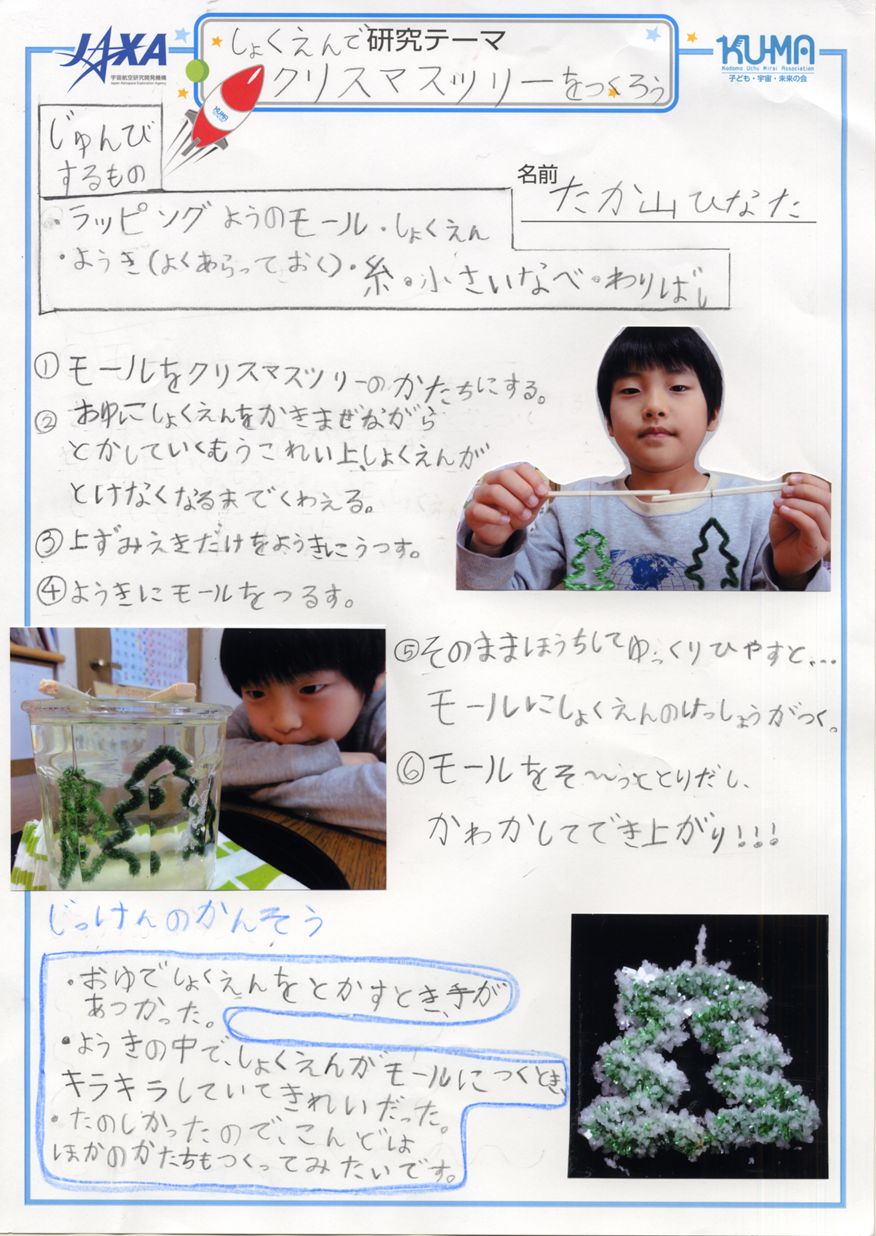 JAXA
宇宙航空研究開発機構
Japan Aerospace Exploration Agency
しょくえんで研究テーマ
クリスマスツリーをつくろう
KU-MA
Kodomo Uchu Mirai Association
子ども・宇宙・未来の会
KU-MA
じゅんび
するもの
名前 たか山ひなた
・ラッピングようのモール・しょくえん
・ようき(よくあらっておく)・糸・小さいなべ・わりばし
①モールをクリスマスツリーのかたちにする。
②おゆにしょくえんをかきまぜながら
とかしていくもうこれい上、しょくえんが
とけなくなるまでくわえる。
③上ずみえきだけをようきにうつす。
④ようきにモールをつるす。
⑤そのままほうちしてゆっくりひやすと、…
モールにしょくえんのけっしょうがつく。
⑥モールをそ〜っととりだし、
かわかしてでき上がり!!!
じっけんのかんそう
・おゆでしょくえんをとかすとき、手が
あつかった。
・ようきの中で、しょくえんがモールにつくとき、
キラキラしていてきれいだった。
・たのしかったので、こんどは
ほかのかたちもつくってみたいです。